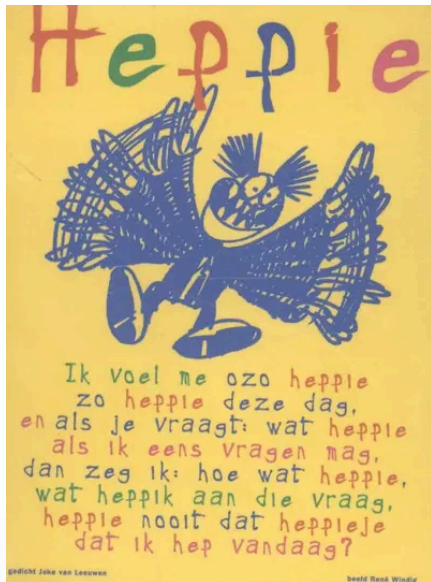 Heppie
Ik voel me ozo heppie
zo heppie deze dag,
en als je vraagt: wat heppie
als ik eens vragen mag,
dan zeg ik: hoe wat heppie,
wat heppik aan die vraag,
heppie nooit dat heppieje
dat ik hep vandaag?
gedicht Joke van Leeuwen
beeld René Windig